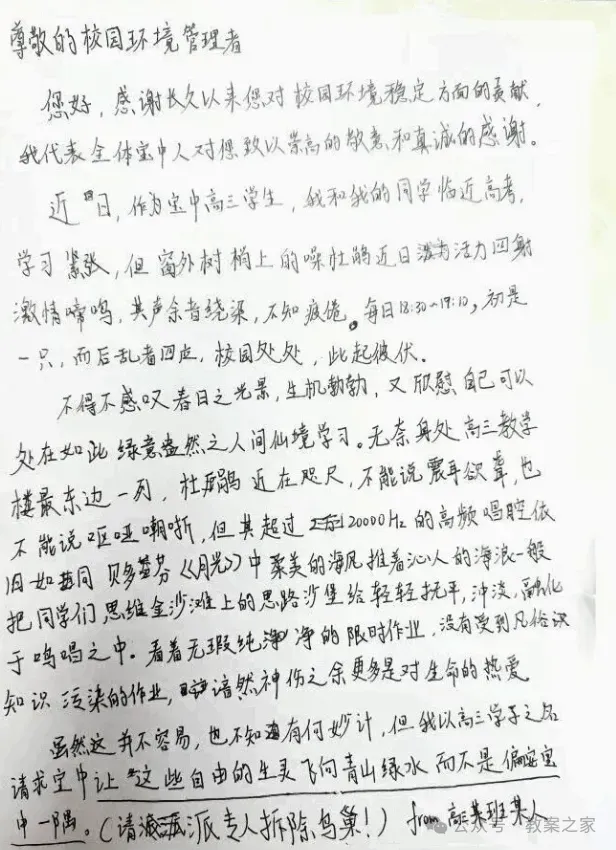 尊敬的校园环境管理者
您好,感谢长久以来您对校园环境稳定方面的贡献,
我代表全体宝中人对您致以崇高的敬意和真诚的感谢。
近日,作为宝中高三学生,我和我的同学临近高考,
学习紧张,但窗外树梢上的噪杜鹃近日活力四射
激情啼鸣,其声余音绕梁,不知疲倦。每日18:30~19:10,初是
一只,而后乱者四应,校园处处,此起彼伏.
不得不感叹春日之光景,生机勃勃,又欣慰自己可以
处在如此绿意盎然之人间仙境学习。无奈身处高三教学
楼最东边一列,杜鹃近在咫尺,不能说震耳欲聋,也
不能说呕哑嘲哳,但其超过20000Hz的高频唱腔依
旧如同贝多芬《月光》中柔美的海风推着沁人的海浪一般
把同学们思维金沙滩上的思路沙堡给轻轻抚平,冲淡,融化
于鸣唱之中.看着无瑕纯净的限时作业,没有受到凡俗识
知识污染的作业,谙然神伤之余更多是对生命的热爱
虽然这并不容易,也不知有何妙计,但我以高三学子之名
请求宝中让这些自由的生灵飞向青山绿水而不是偏安宝
中一隅。(请派专人拆除鸟巢!)from高三某班某人
公众号·教案之家